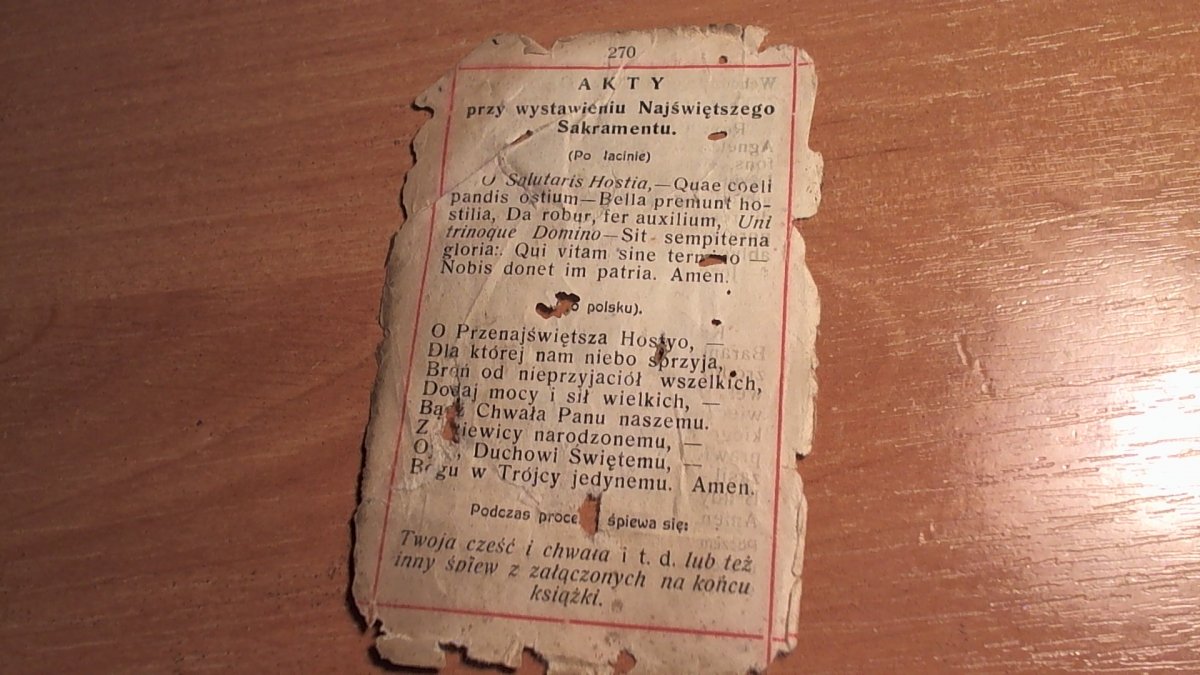 270
AKTY
przy wystawieniu Najświętszego
Sakramentu.
(Po łacinie)
O Salutaris Hostia,—Quae coeli
pandis ostium—Bella premunt ho-
stilia, Da robur, fer auxilium, Uni
trinoque Domino—Sit sempiterna
gloria:. Qui vitam sine termino —
Nobis donet im patria. Amen.
polsku).
O Przenajświętsza Hostyo, —
Dla której nam niebo sprzyja,
Broń od nieprzyjaciół wszelkich,
Dodaj mocy i sił wielkich, —
Chwała Panu naszemu.
Z narodzonemu, —
Duchowi Świętemu, —
Bogu w Trójcy jedynemu. Amen.
Podczas śpiewa się:
Twoja cześć i chwała i t. d. lub też
inny śpiew z załączonych na końcu
książki.